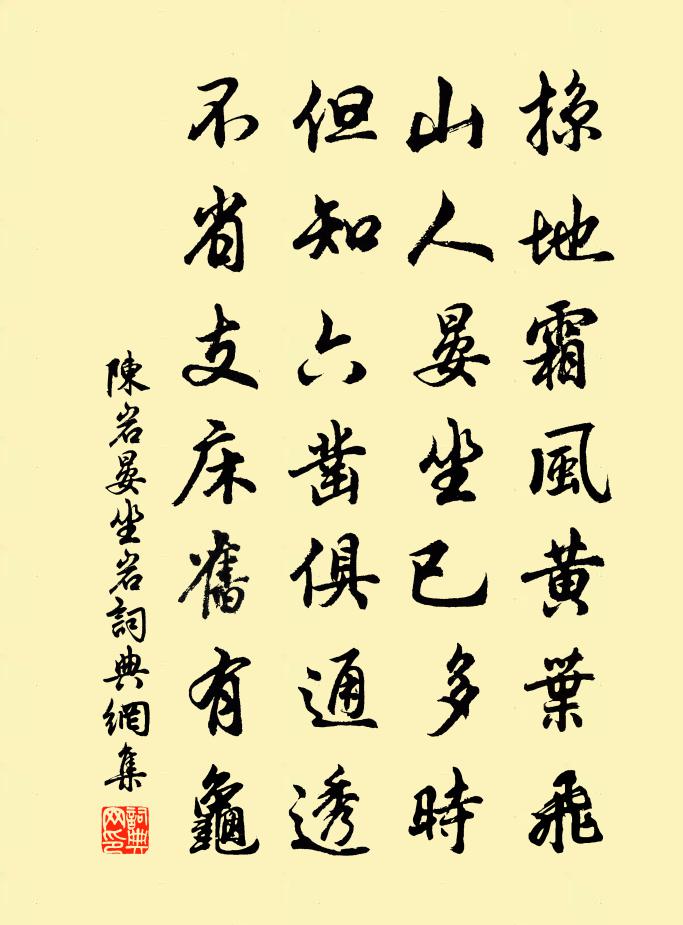 掠地霜風黃葉飛
山人晏坐已多時
但知六鑿俱通透
不省支床舊有龜
陳岩晏坐岩詞典網集
詞典网印